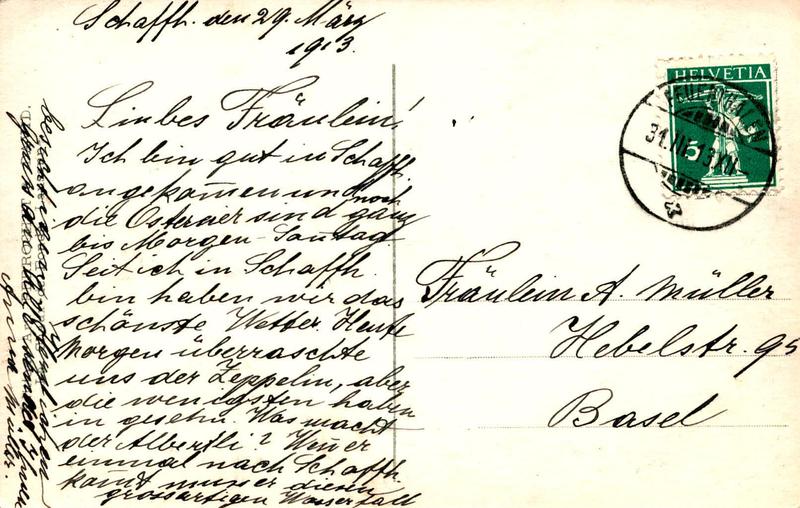 Schaffh. den 29. März
1913.
Liebes Fräulein!
Ich bin gut in Schaffh.
angekommen und noch
die Ostereier sind ganz
bis Morgen-Sontag
Seit ich in Schaffh.
bin haben wir das
schönste Wetter. Heute
Morgen überraschte
uns der Zeppelin, aber
die wenigsten haben
in gesehn. Was macht
der Albertli? Wen er
einmal nach Schaffh.
komt muss er diesen
grossartigen Wasserfall
HELVETIA
5
FEUERTHALEN
31.III.13.XII-
Fräulein A. Müller
Hebelstr. 95
Basel